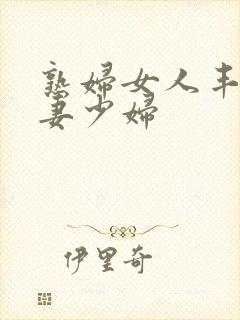 熟婦女人丰
妻少婦
伊里奇